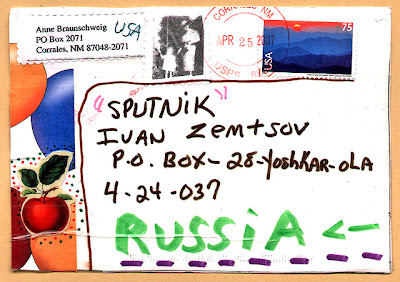 Anne Braunschweig
PO Box 2071
Corrales, NM 87048-2071
USA
CORRALES NM
APR 25 2007
USPS
75
USA
"SPUTNiK"
IVAN Zemtsov
P.O. BOX-28-YoshKAR-OLA
4-24-037
RUSSiA ←